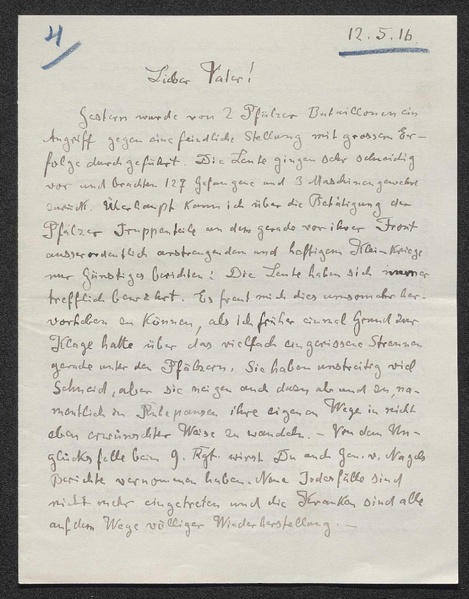 4
12.5.16
Lieber Vater!
Gestern wurde von 2 Pfälzer Bataillonen ein
Angriff gegen eine feindliche Stellung mit grossem Er-
folge durchgeführt. Die Leute gingen sehr schneidig
vor und brachten 127 Gefangene und 3 Maschinengewehre
zurück. Überhaupt kann ich über die Betätigung der
Pfälzer Truppenteile an dem gerade vor ihrer Front
ausserordentlich anstrengenden und heftigen Kleinkriege
nur Günstiges berichten: Die Leute haben sich immer
trefflich bewährt. Es freut mich dies umsomehr her-
vorheben zu können, als ich früher einmal Grund zur
Klage hatte über das vielfach eingerissene Streunen
gerade unter den Pfälzern. Sie haben unstreitig viel
Schneid, aber sie neigen auch dazu ab und zu, na-
mentlich in Ruhepausen ihre eigenen Wege in nicht
eben erwünschter Weise zu wandeln. – Von dem Un-
glücksfalle beim 9. Rgt. wirst Du aus Gen. v. Nagels
Berichte vernommen haben. Neue Todesfälle sind
nicht mehr eingetreten und die Kranken sind alle
auf dem Wege völliger Wiederherstellung. –